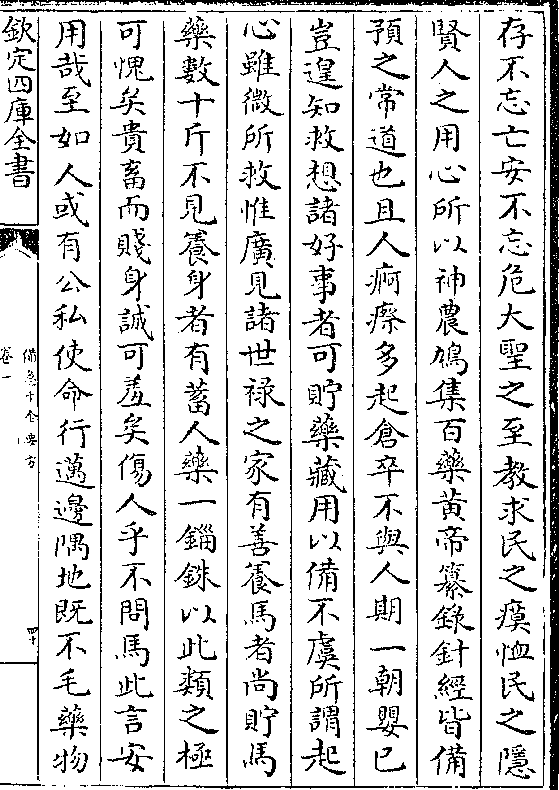 存不忘亡安不忘危大聖之至教求民之瘼恤民之隱
賢人之用心所以神農鳩集百藥黃帝纂錄針經皆備
預之常道也且人痾瘵多起倉卒不與人期一朝嬰已
豈遑知救想諸好事者可貯藥藏用以備不虞所謂起
心雖微所救惟廣見諸世祿之家有善養馬者尚貯馬
藥數十斤不見養身者有蓄人藥一錙銖以此類之極
可愧矣貴畜而賤身誠可羞矣傷人乎不問馬此言安
用哉至如人或有公私使命行邁邊隅地既不毛藥物
欽定四庫全書
備急千金要方
卷一
四十